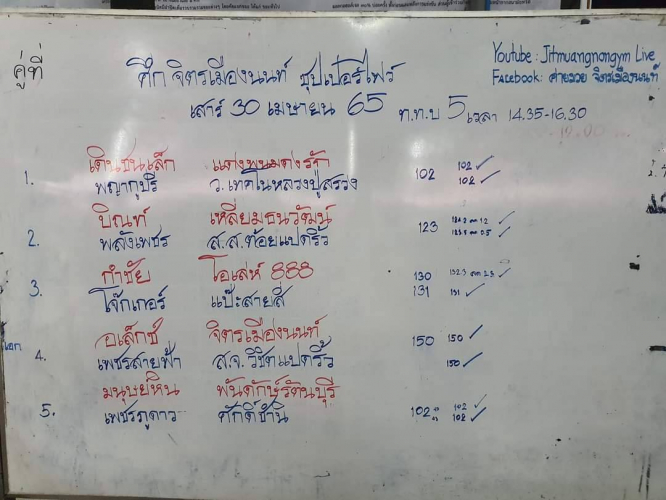 Youtube : Jitmuangnongym Live
Facebook: ค่ายมวย จิตรเมืองนนท์
คู่ที่
ศึก จิตรเมืองนนท์ ซุปเปอร์ไฟว์
เสาร์ 30 เมษายน 65 ท.ท.บ 5 เวลา 14.35-16.30
เดินชนเล็ก
1. พญากุปรี ว.เทคโนหลวงปู่สรวง 102 102 ✓
102 ✓
บิณฑ์ เหลี่ยมธนวัฒน์
2. พลังเพชร ส.ส.ต้อยแปดริ้ว 123
กำชัย โอเล่ห์ 888 130
3. โจ๊กเกอร์ แป๊ะสายสี 131 131 ✓
อเล็กซ์ จิตรเมืองนนท์ 150 150 ✓
เอก 4. เพชรสายฟ้า ส.จ.วิชิตแปดริ้ว 150 ✓
มนุษย์หิน พันดักษ์รัตนบุรี
5. เพชรภูดาว ศักดิ์ชานิ 102 102 ✓
102 ✓